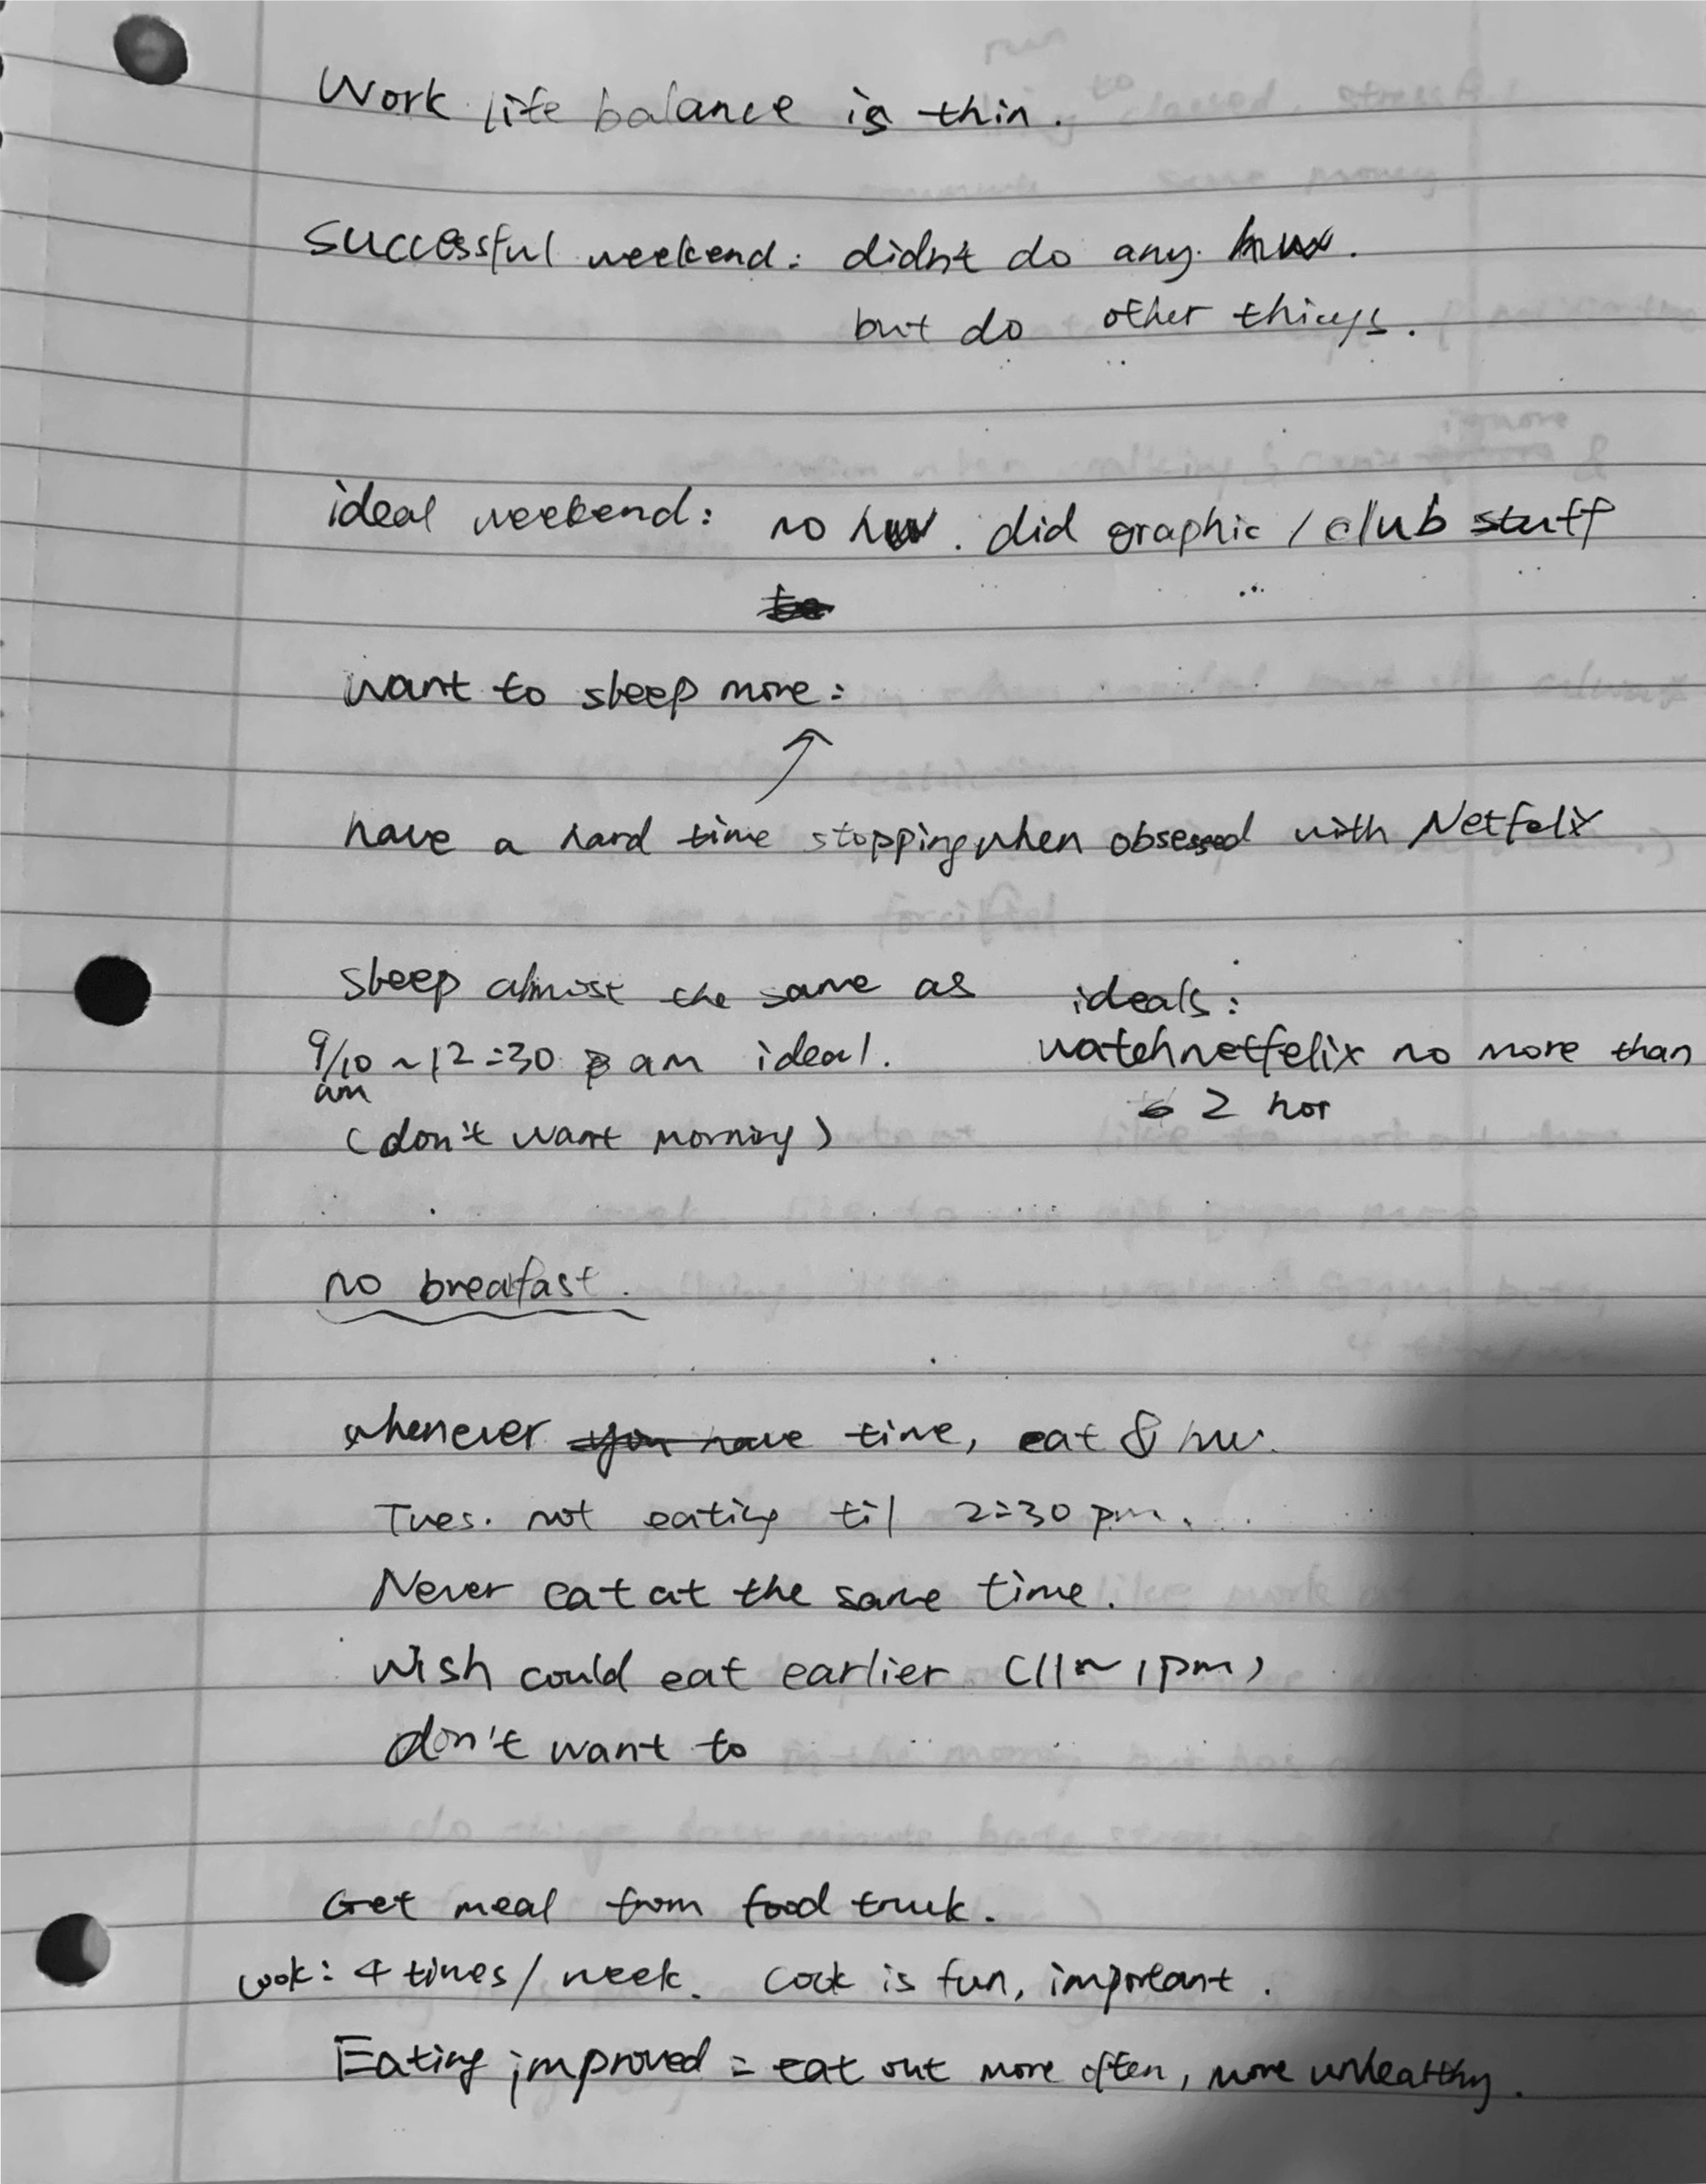 Work life balance is thin.
successful weekend: didn't do any hw.
but do other things.
ideal weekend: no hw. did graphic / club stuff
want to sleep more:
have a hard time stopping when obsessed with Netfelix
sleep almost the same as
9/10 ~ 12:30 am ideal.
am
(don't want morning)
ideals:
watch netfelix no more than
2 hor
no breafast.
whenever you have time, eat & hw.
Tues. not eating til 2:30 pm.
Never eat at the same time.
wish could eat earlier (11~1pm)
don't want to
Get meal from food truck.
cook: 4 times/week. cook is fun, important.
Eating improved = eat out more often, more unhealthy.